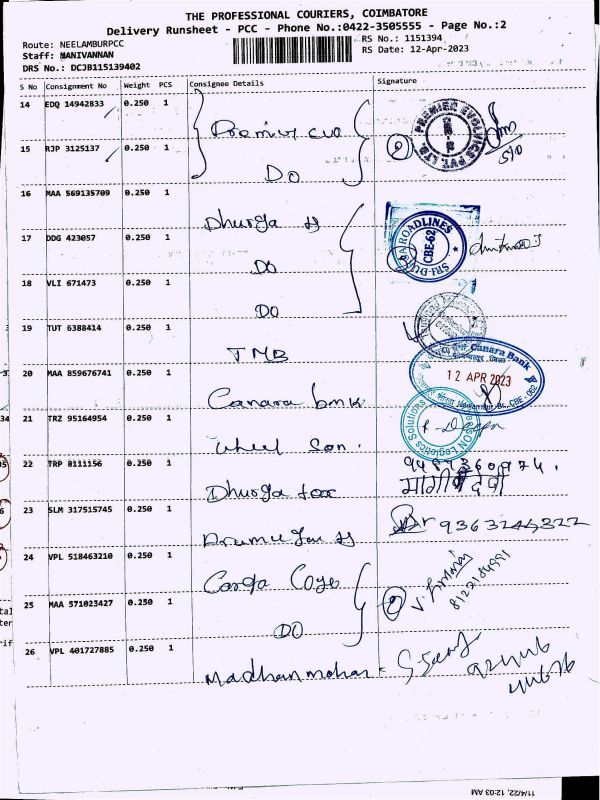 THE PROFESSIONAL COURIERS, COIMBATORE
Delivery Runsheet - PCC - Phone No.:0422-3505555 - Page No.:2
Route: NEELAMBURPCC RS No.: 1151394
Staff: MANIVANNAN RS Date: 12-Apr-2023
DRS No.: DCJB115139402
S No Consignment No Weight PCS Consignee Details Signature
14 EDQ 14942833 0.250 1
Premier evo
PREMIER EVOLVICS PVT. LTD.
15 RJP 3125137 0.250 1
DO
16 MAA 569135709 0.250 1
Dhurga
17 DDG 423057 0.250 1
SRI-DURGA ROADLINES
CBE-62
DO
18 VLI 671473 0.250 1
DO
19 TUT 6388414 0.250 1
TMB
20 MAA 859676741 0.250 1
Canara Bank
12 APR 2023
Canara bnk
21 TRZ 95164954 0.250 1
Logistics Solutions
Wheel Son.
22 TRP 8111156 0.250 1
9487360974.
Dhurga
देवी
23 SLM 317515745 0.250 1
9363244322
Arumugam
24 VPL 518463210 0.250 1
Cargo
8122184991
25 MAA 571023427 0.250 1
DO
26 VPL 401727885 0.250 1
Madhan mohan
11/4/22, 12:03 AM